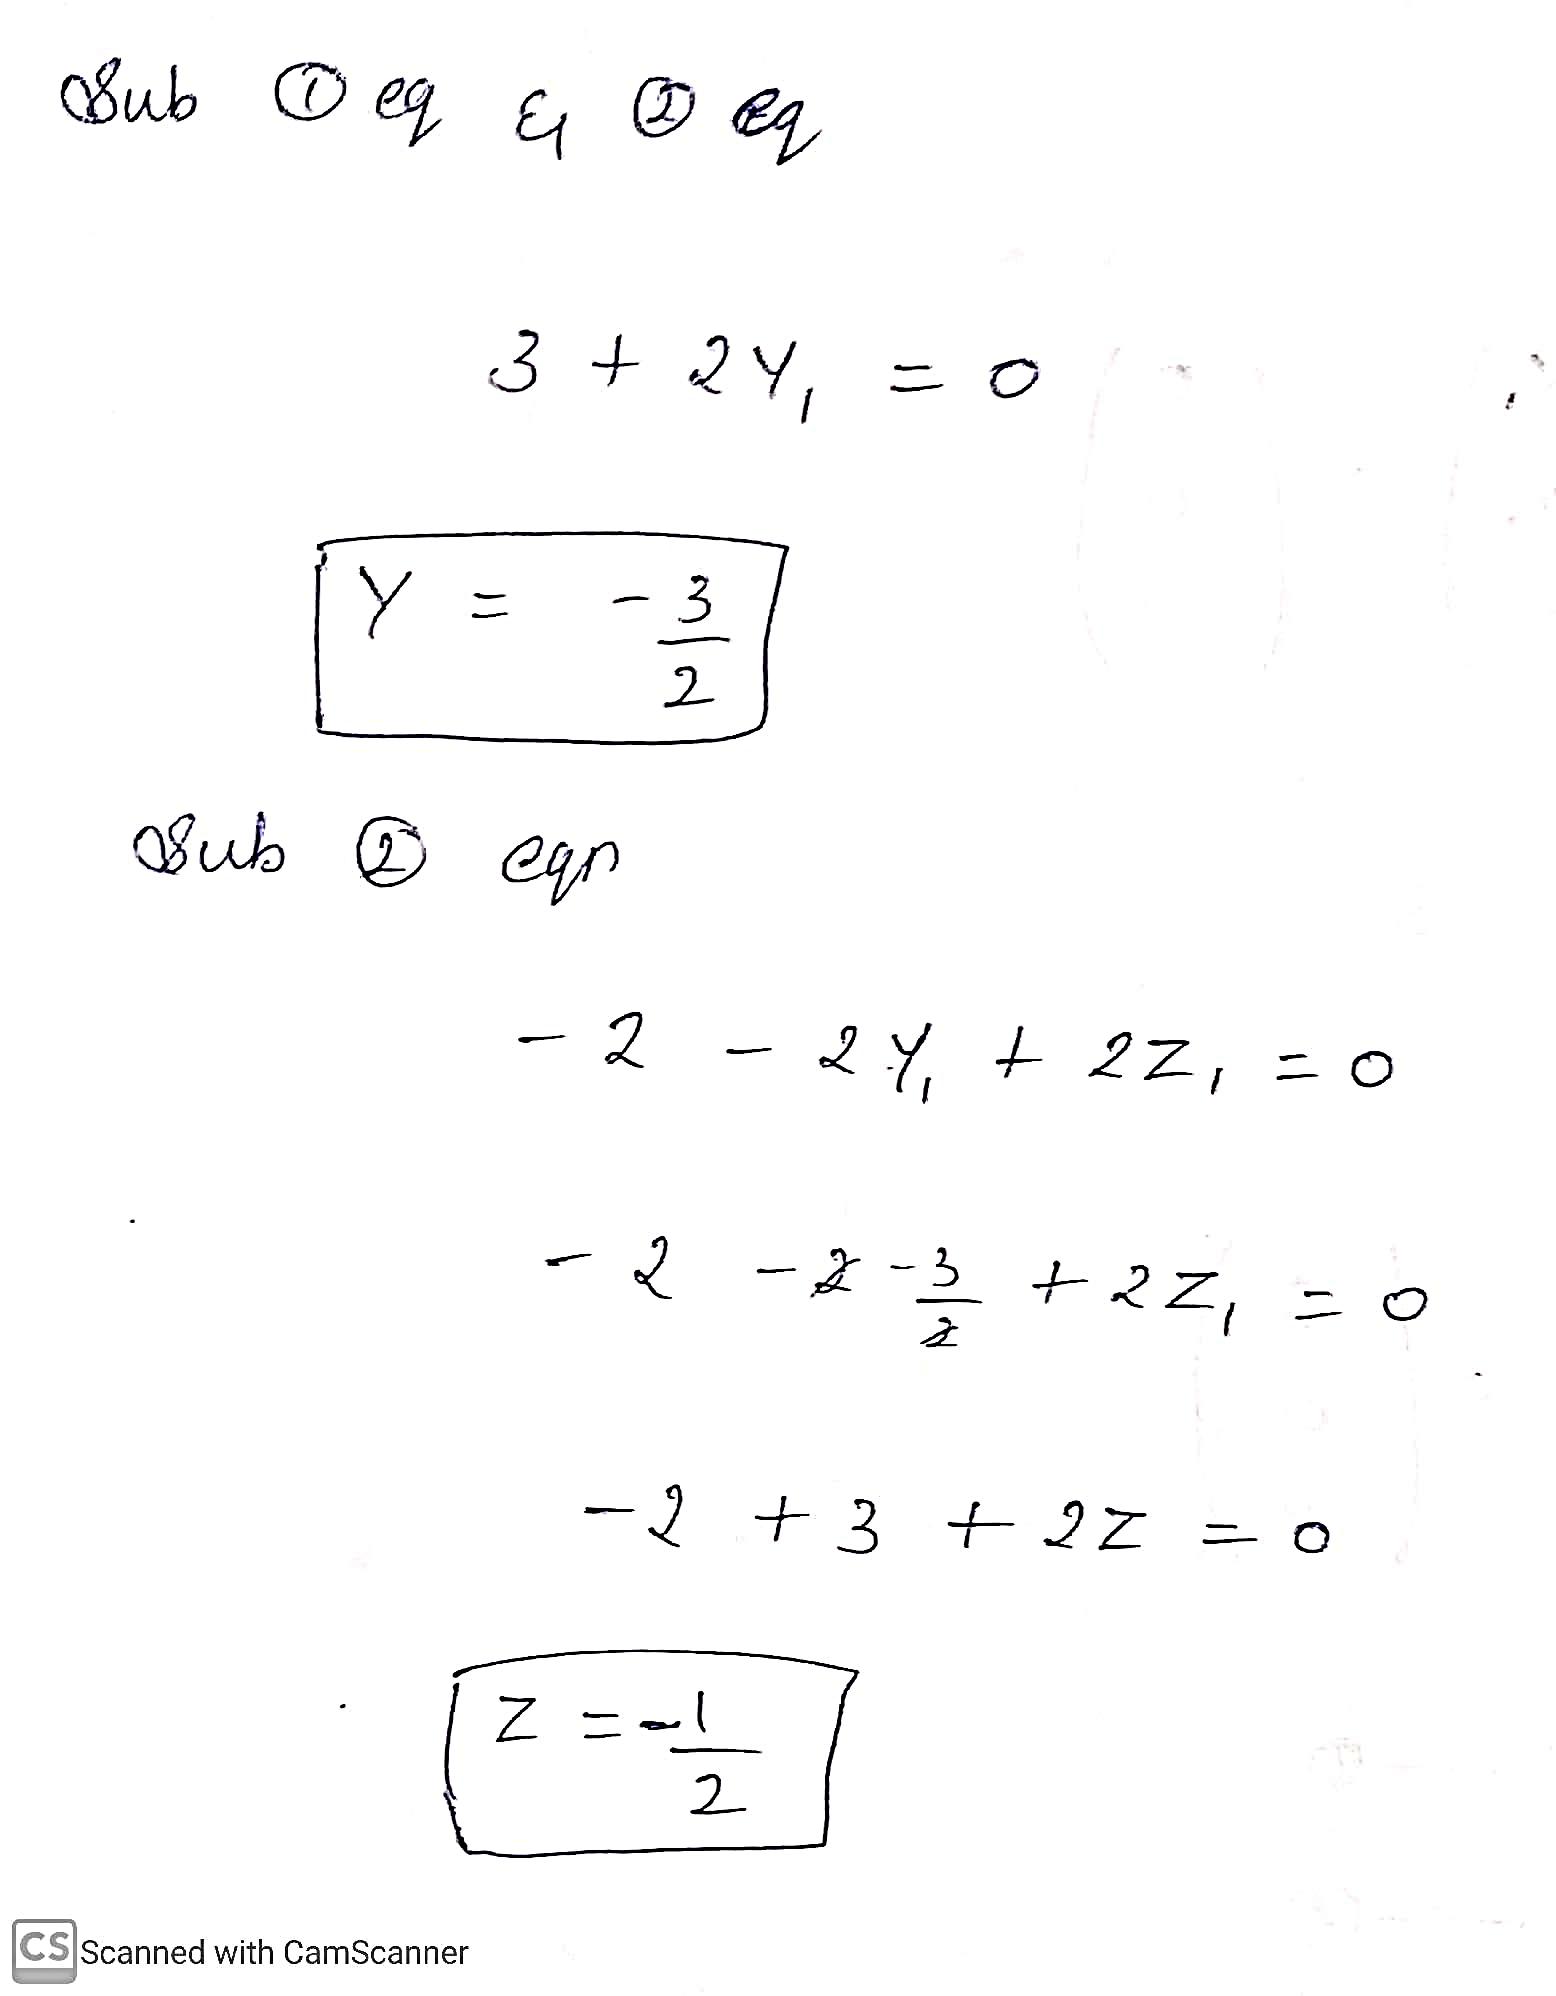 Sub ① eq & ② eq
3 + 2Y₁ = 0
Y = -3/2
Sub ② eqn
-2 - 2Y₁ + 2Z₁ = 0
-2 -2 -3/2 + 2Z₁ = 0
-2 + 3 + 2Z = 0
Z = -1/2
CS Scanned with CamScanner